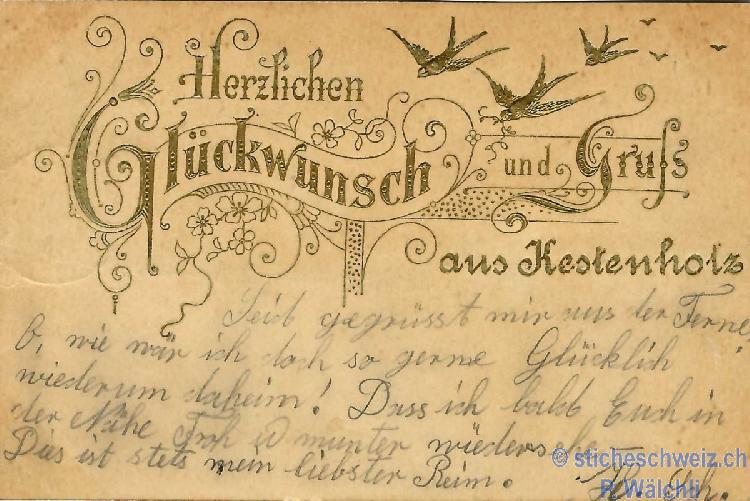 Herzlichen
Glückwunsch und Gruss
aus Kestenholz
Seid gegrüsst mir aus der Ferne,
O, wie wär ich doch so gerne Glücklich
wiederum daheim! Dass ich bald Euch in
der Nähe Froh u munter wiedersehe
Das ist stets mein liebster Reim.
© sticheschweiz.ch
P. Wälchli